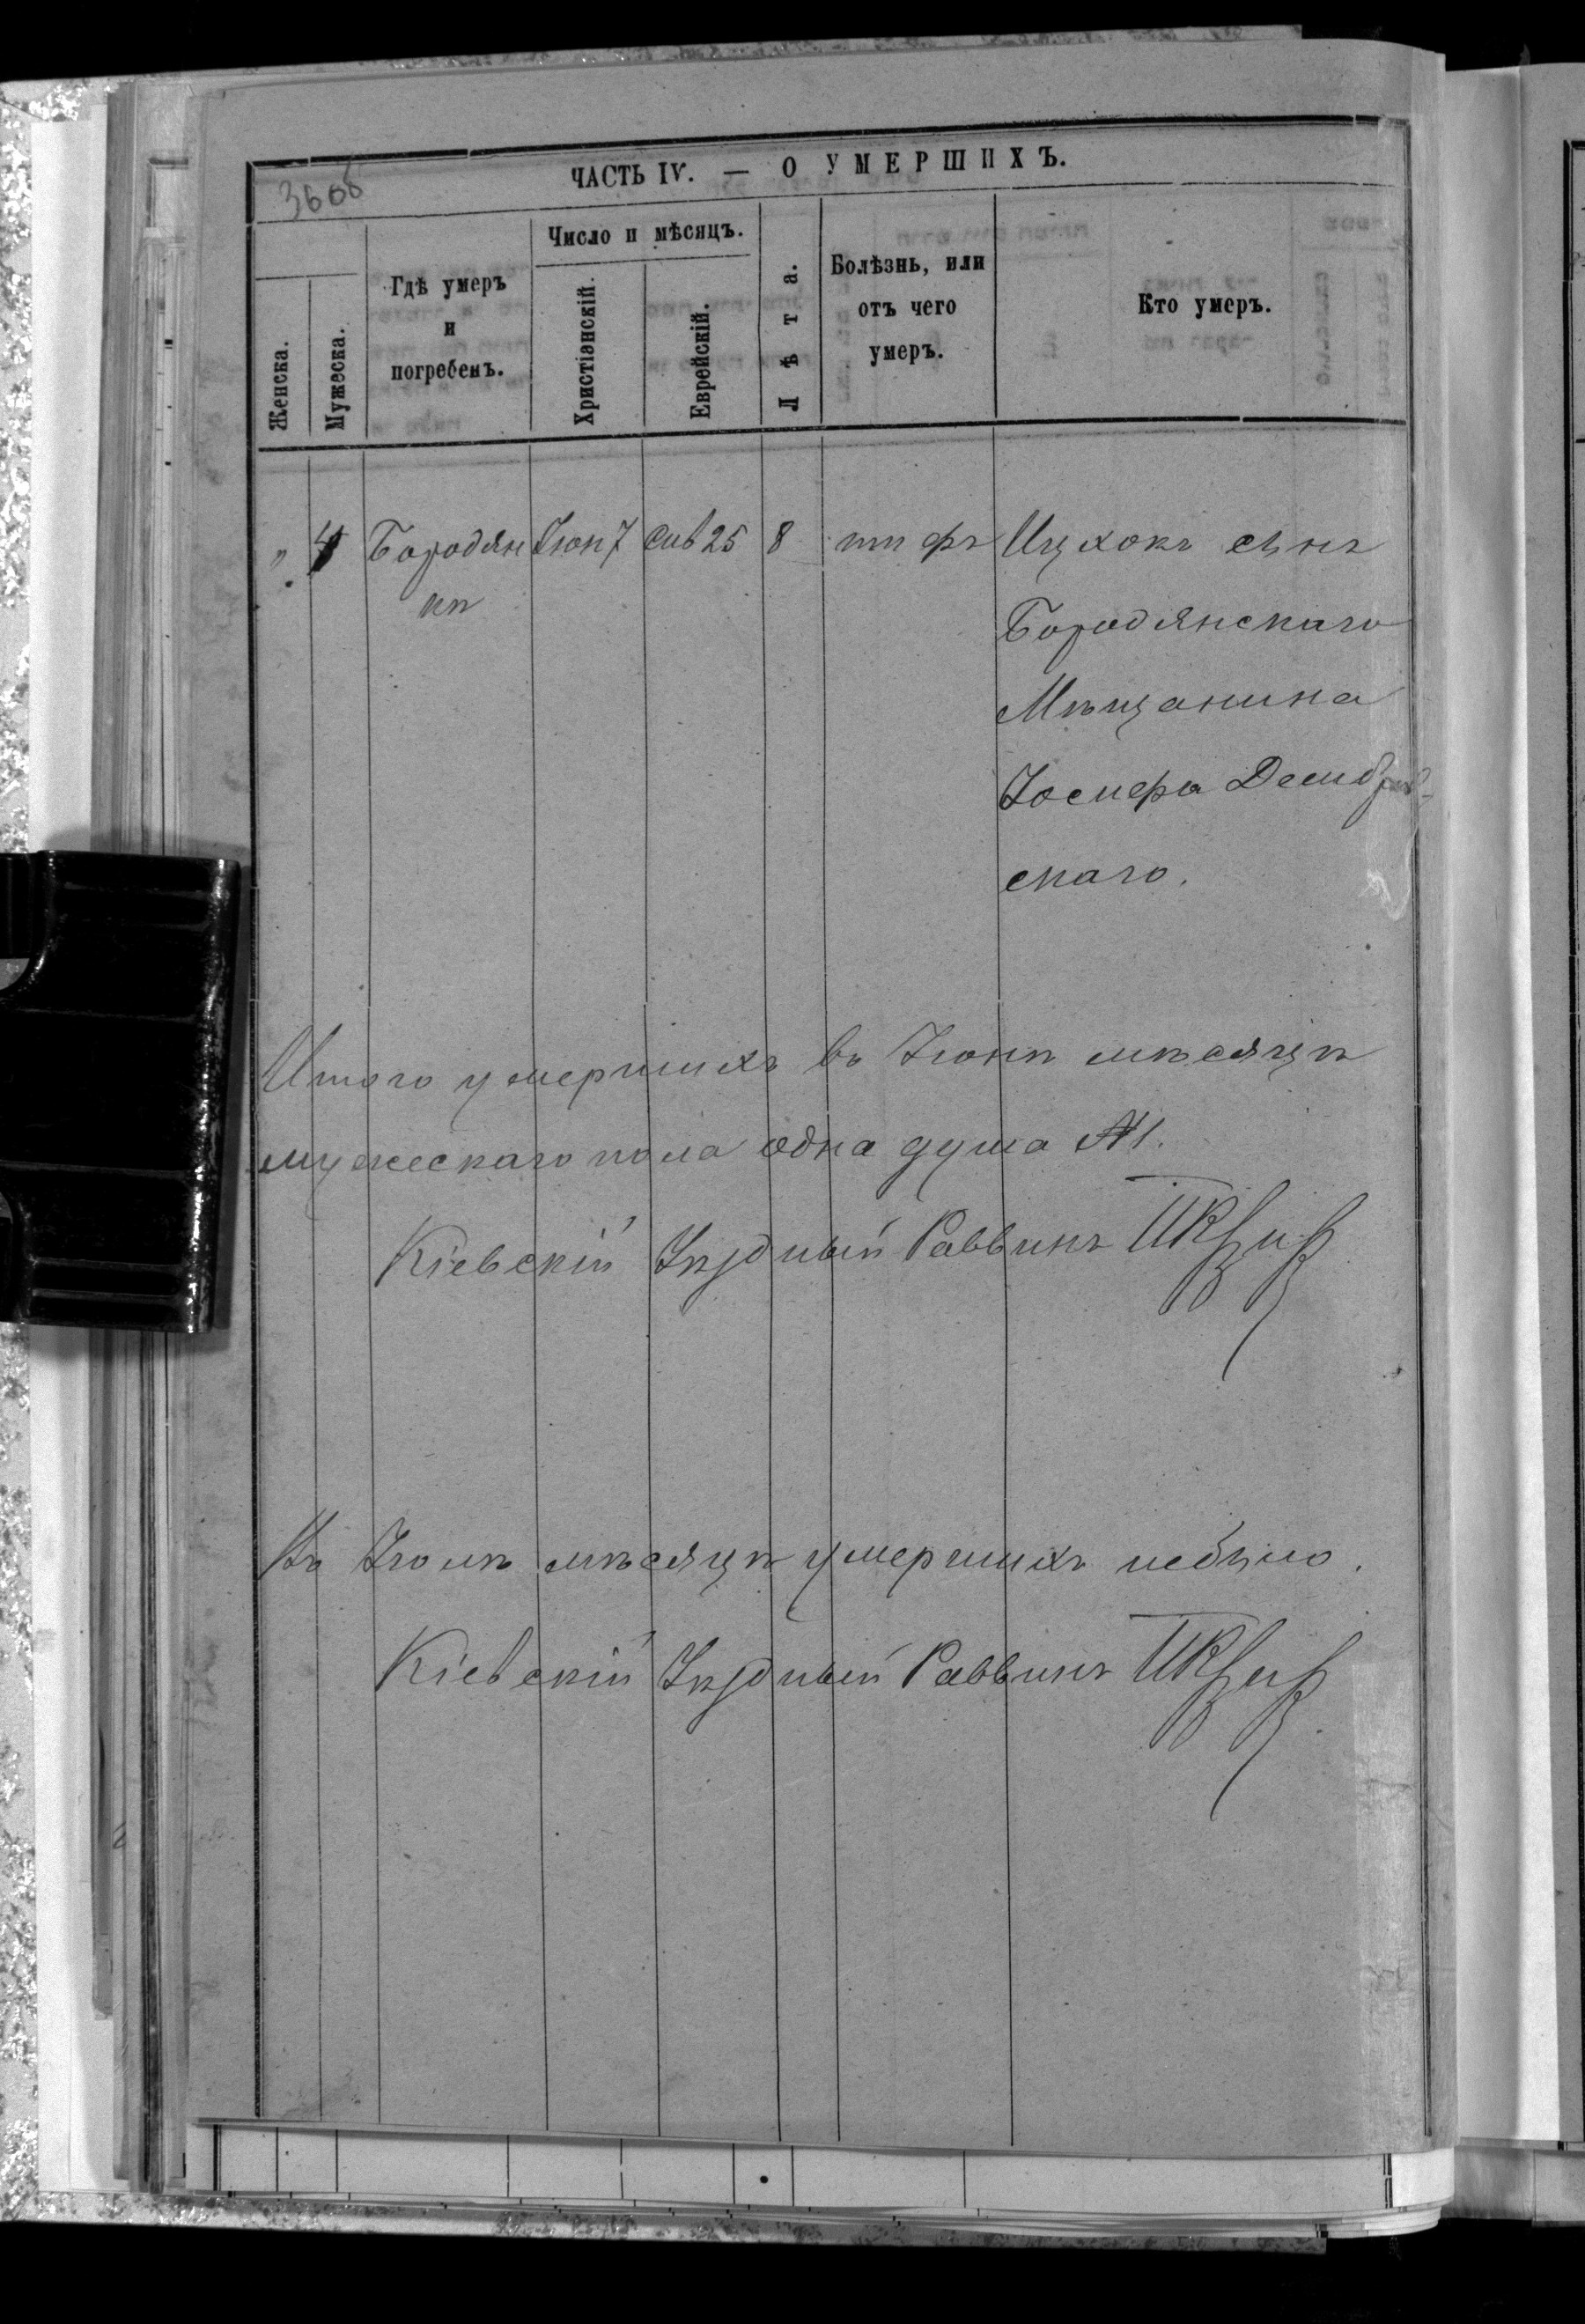 366об
ЧАСТЬ IV. — О УМЕРШИХЪ.
Женска.
Мужеска.
Гдѣ умеръ
и
погребенъ.
Число и мѣсяцъ.
Христіанскій.
Еврейскій.
Лѣта.
Болѣзнь, или
отъ чего
умеръ.
Кто умеръ.
„ 4 Бородян Іюн 7 Сив 25 8 тифъ Ицхокъ сынъ
кѣ
Бородянскаго
Мѣщанина
Іосифа
скаго.
Итого умершихъ въ Іюнѣ мѣсяцѣ
мужескаго пола одна душа №1.
Кіевскій Уѣздный Раввинъ
Въ Іюлѣ мѣсяцѣ умершихъ небыло.
Кіевскій Уѣздный Раввинъ